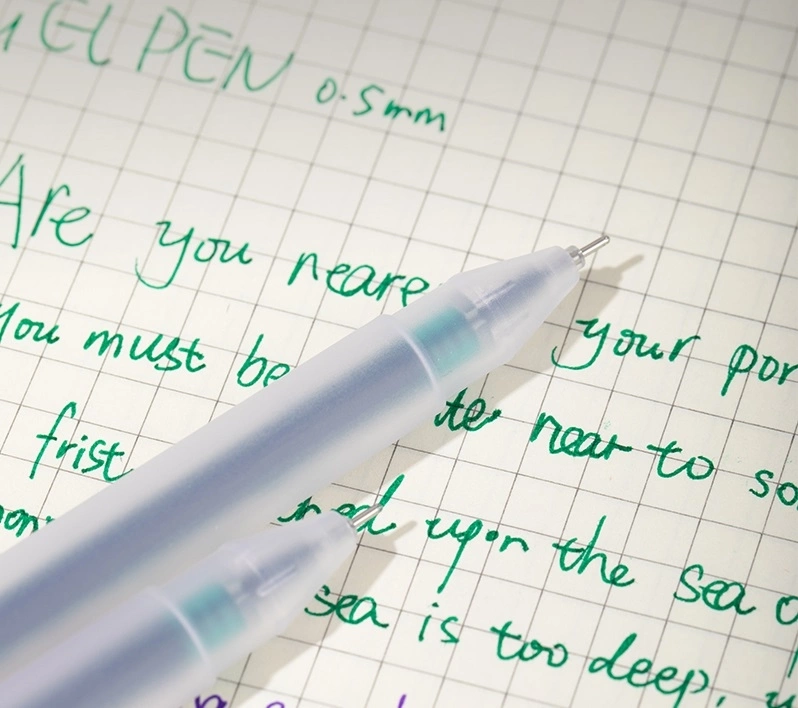 GEL PEN 0.5mm
Are you neare your por
You must be te near to so
frist
ned upon the sea
sea is too deep,